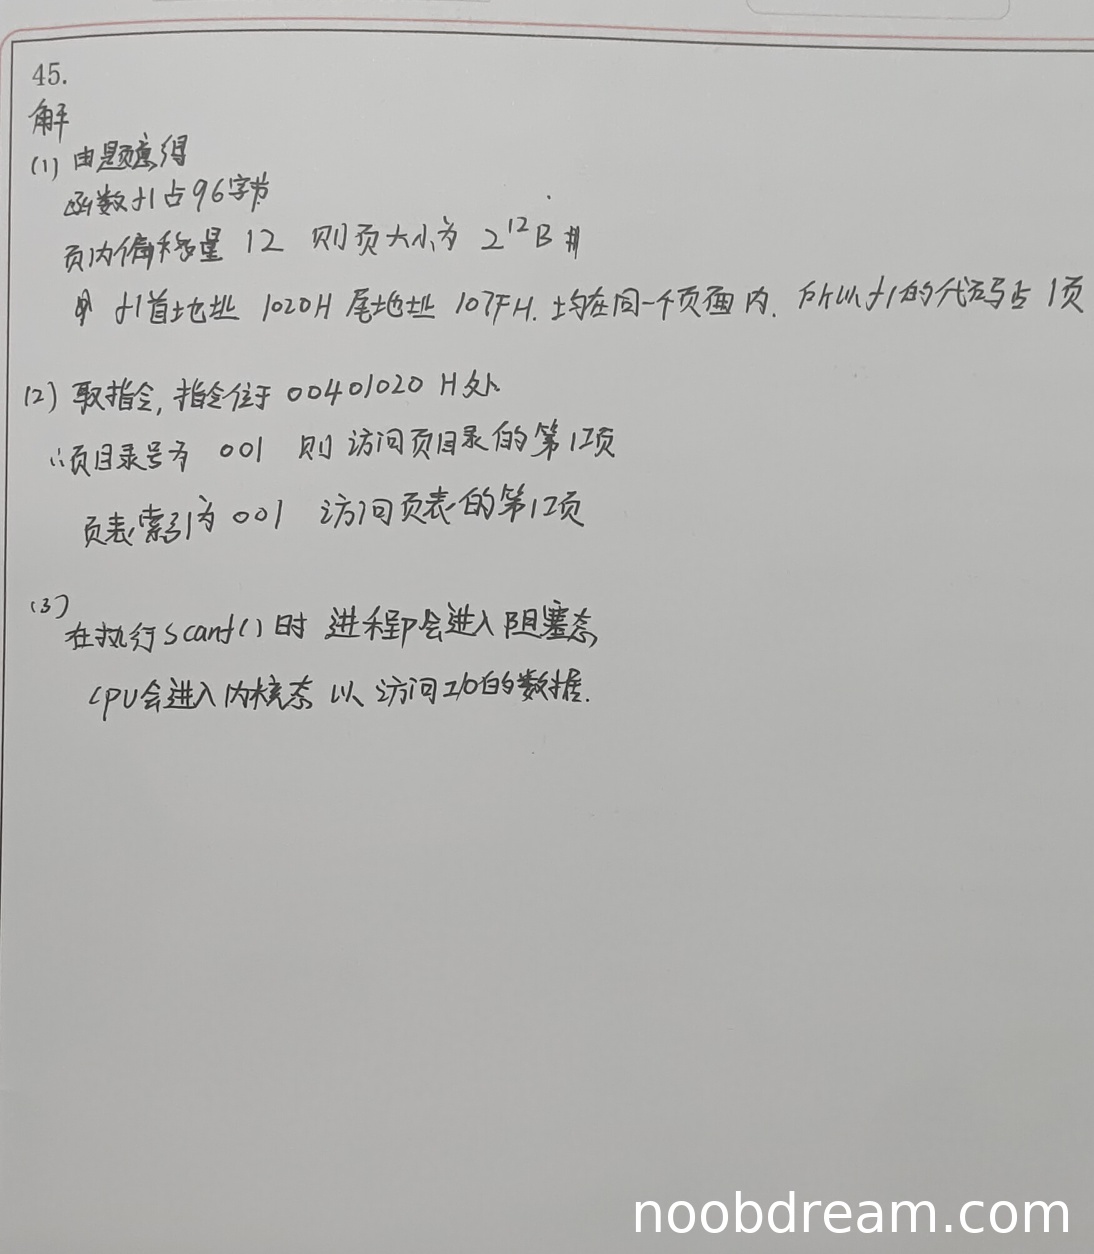 45.
解
(1) 由题意得
函数f1占96字节
页内偏移量 12 则页大小为 2¹²B
f1首地址 1020H 尾地址 107FH. 均在同一个页面内. 所以f1的代码占 1页
(2) 取指令, 指令位于 00401020 H处
∴页目录号为 001 则 访问页目录的第1项
页表索引为001 访问页表的第1项
(3)
在执行scanf()时 进程P会进入阻塞态,
CPU会进入内核态 以 访问I/O的数据.
noobdream.com